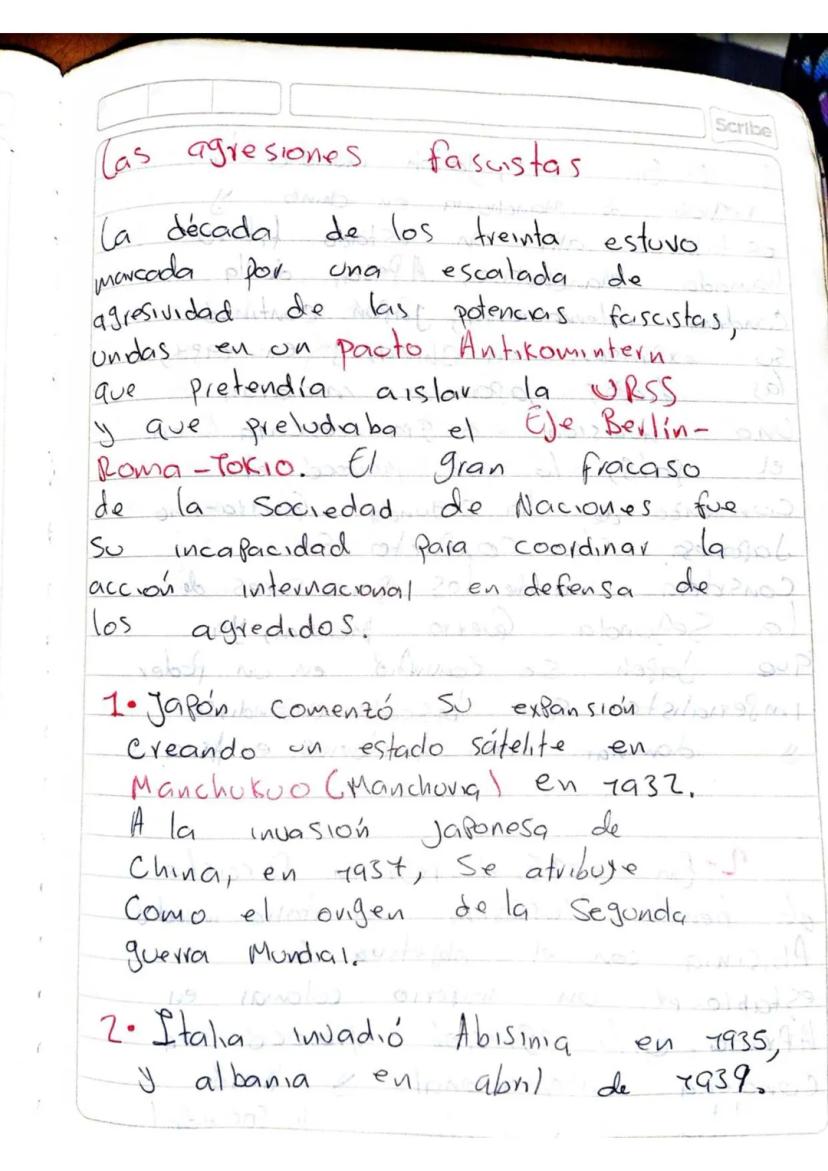 Scribe
Las agresiones fascistas
La década de los treinta estuvo
marcada por una escalada de
agresividad de las potencias fascistas,
undas en un pacto Antikomintern
que pretendía aislar la URSS
y que preludiaba el Eje Berlín-
Roma-Tokio. El gran fracaso
de la Sociedad de Naciones fue
su incapacidad para coordinar la
acción internacional en defensa de
los agredidos.
1• Japón comenzó su expansión
Creando un estado sátelite en
Manchukuo (Manchuria) en 1932.
A la invasión Japonesa de
China, en 1937, se atribuye
Como el origen de la Segunda
guerra Mundial.
2• Italia invadió Abisinia en 1935,
y albania en abril de 1939.